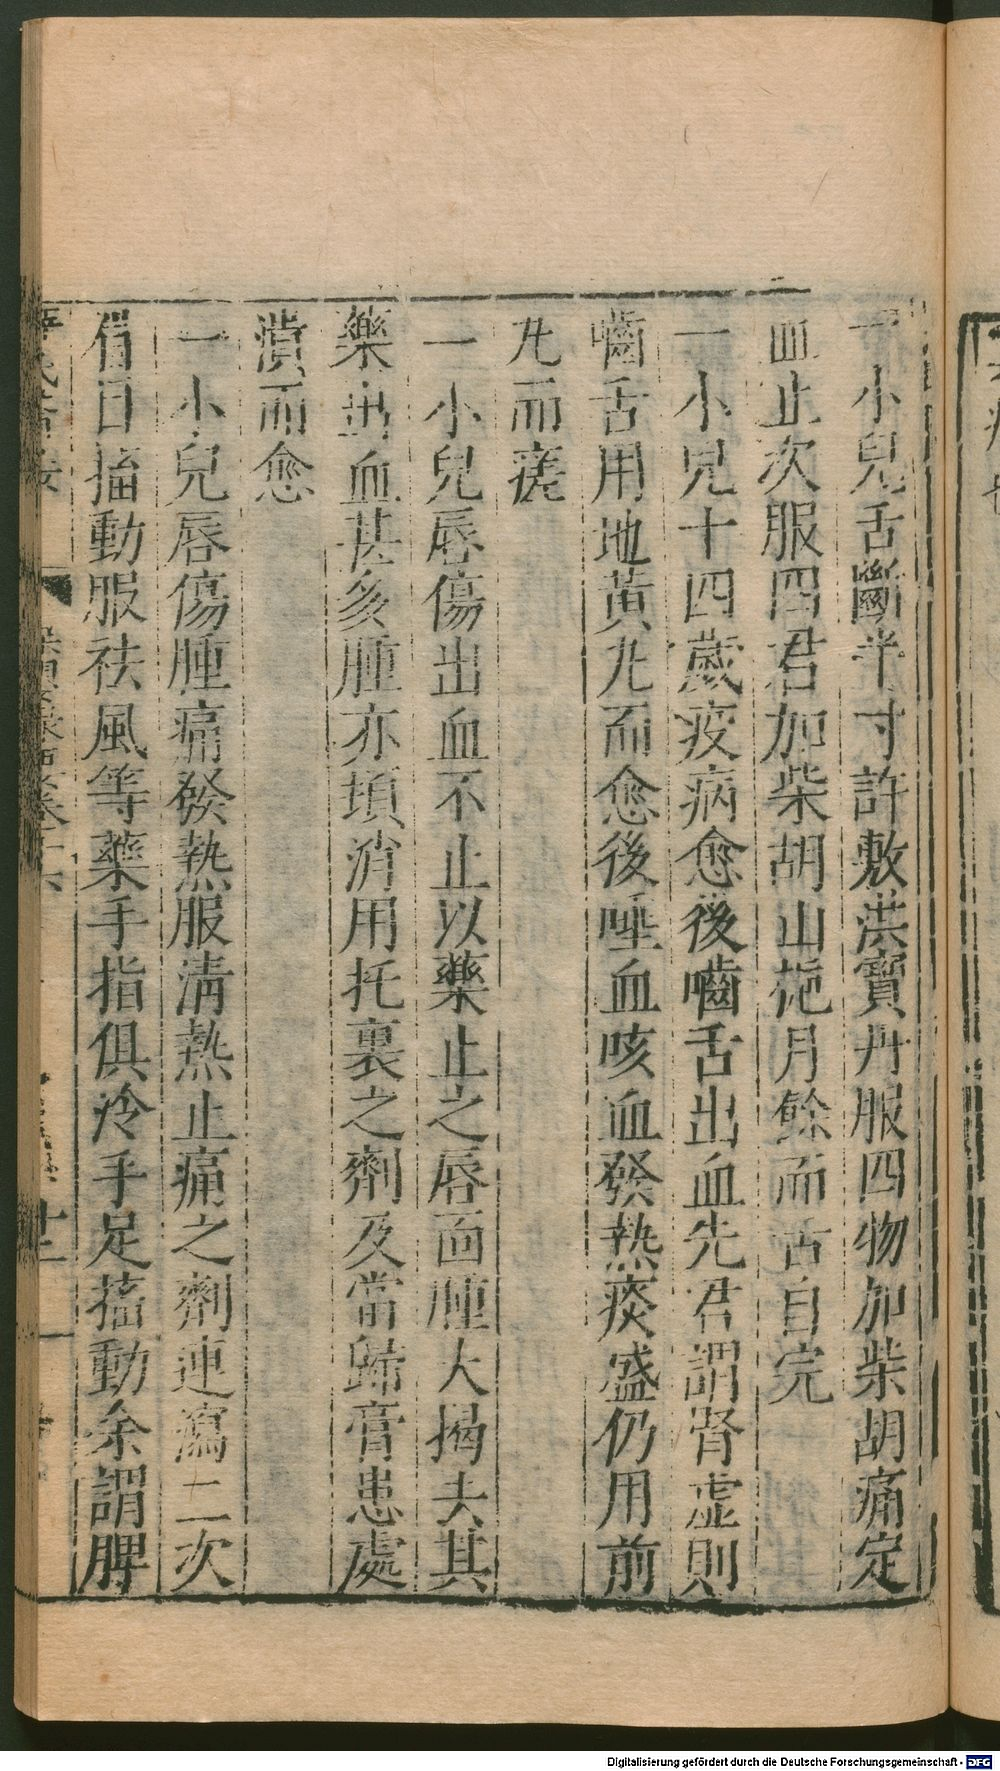 一小兒舌斷半寸許敷洪寶丹服四物加柴胡痛定
血止次服四君加柴胡山梔月餘而舌自完
一小兒十四歲疫病愈後嚙舌出血先君謂腎虛則
嚙舌用地黄丸而愈後唾血咳血發熱痰盛仍用前
丸而痊
一小兒唇傷出血不止以藥止之唇面腫大揭去其
藥出血甚多腫亦頓消用托裏之劑及當歸膏患處
潰而愈
一小兒唇傷腫痛發熱服淸熱止痛之劑連瀉二次
眉目搐動服祛風等藥手指俱冷手足搐動余謂脾
十二
Digitalisierung gefördert durch die Deutsche Forschungsgemeinschaft - DFG